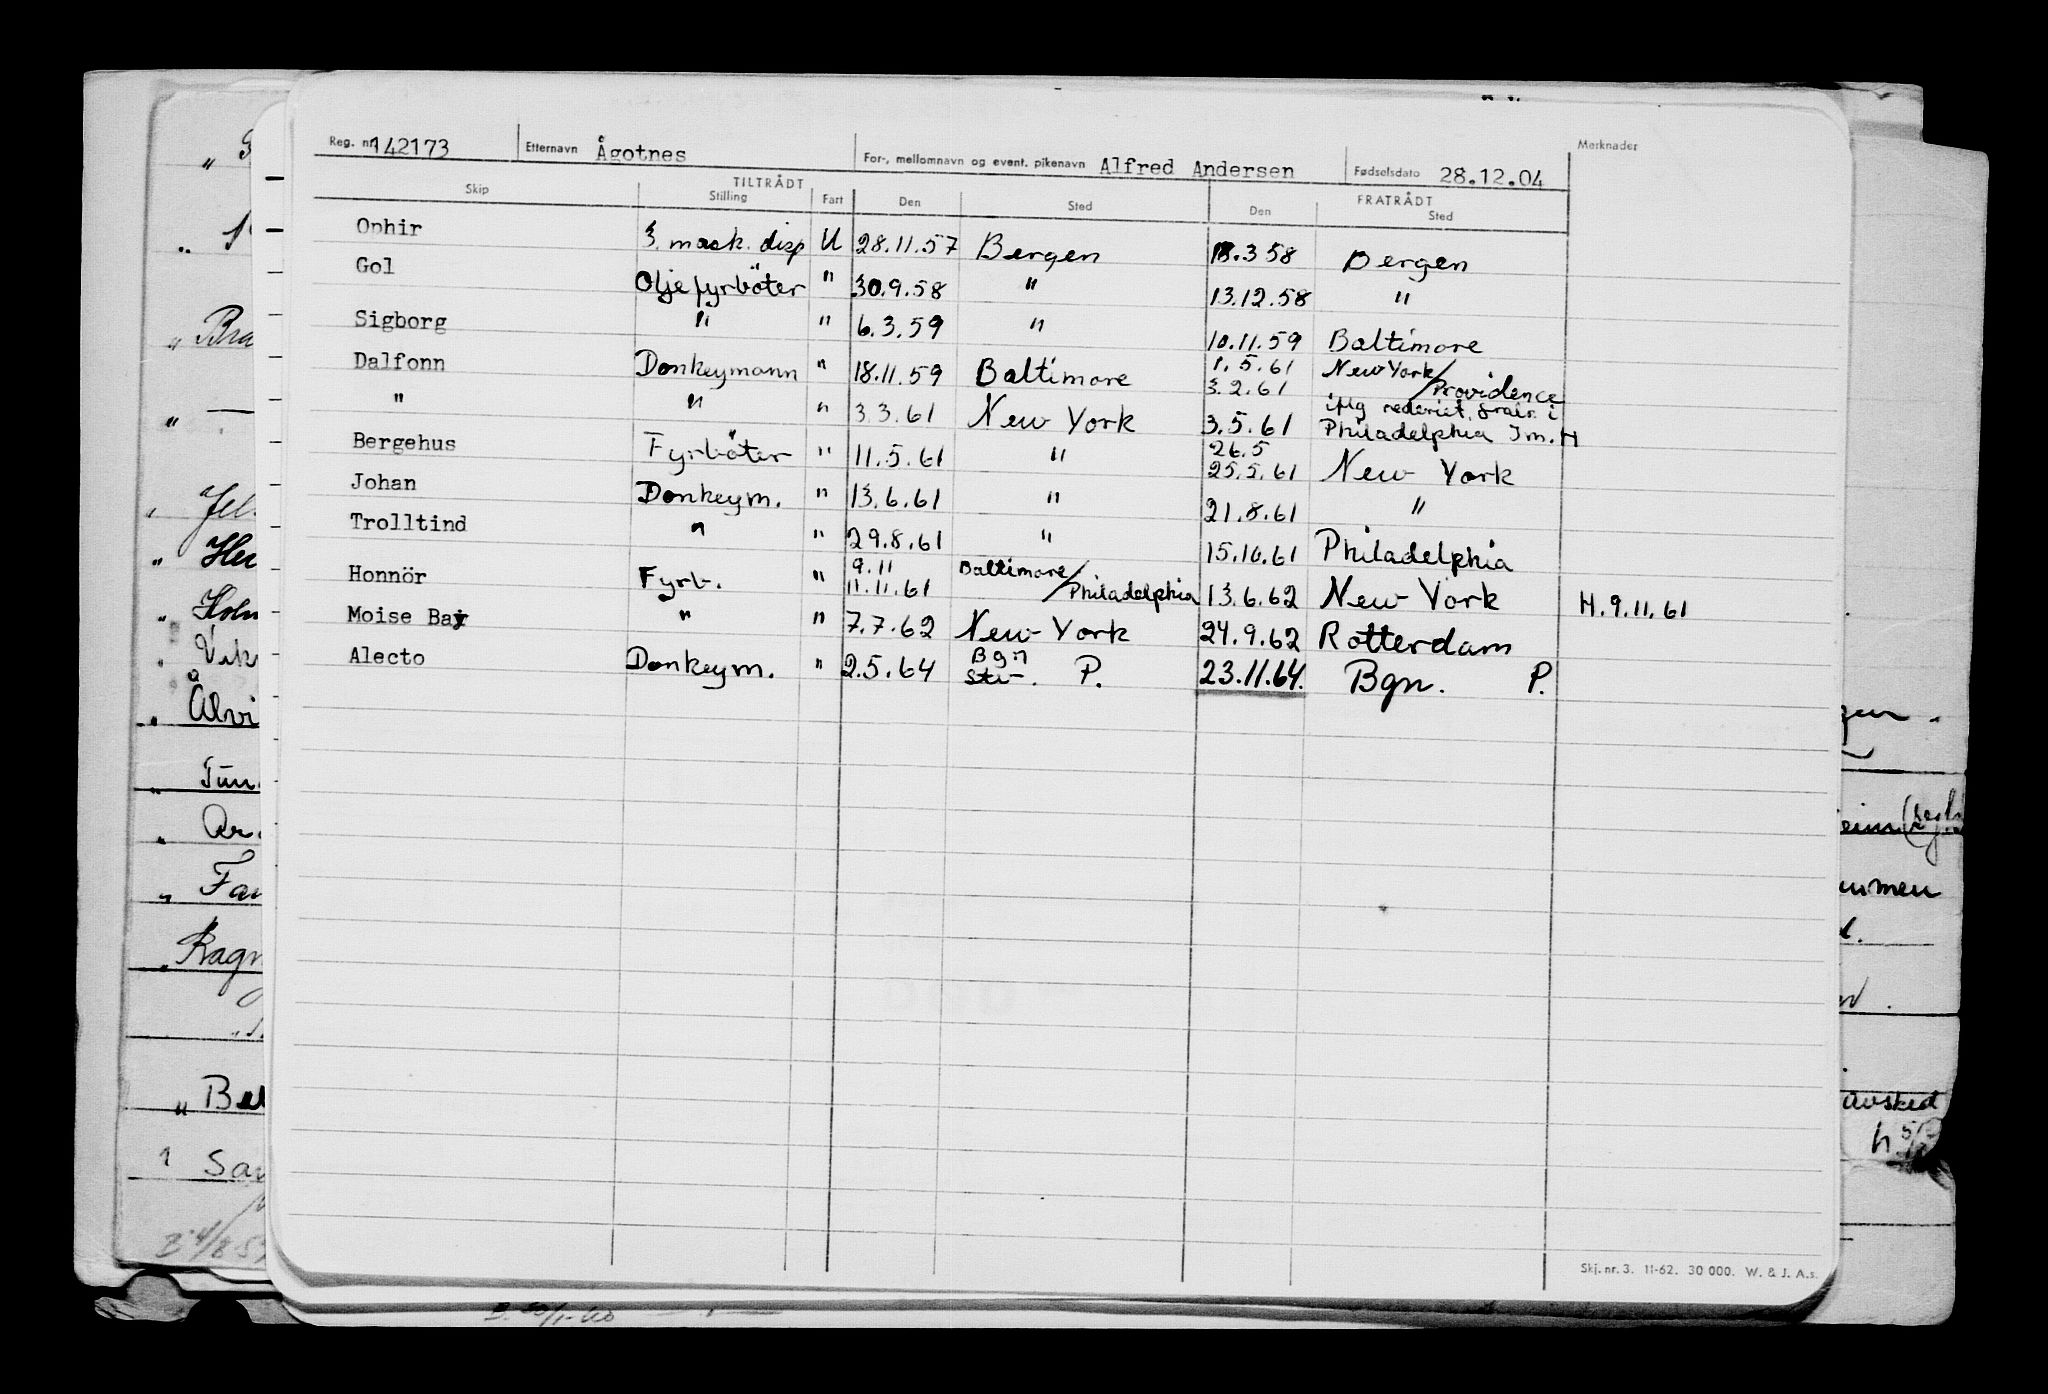 Reg. nr. 142173 Etternavn Ågotnes For-, mellomnavn og event. pikenavn Alfred Andersen Fødselsdato 28.12.04 Merknader
TILTRÅDT FRATRÅDT
Skip Stilling Fart Den Sted Den Sted
Ophir 3. mask. disp U 28.11.57 Bergen 18.3 58 Bergen
Gol Oljefyrböter " 30.9.58 " 13.12.58 "
Sigborg " " 6.3.59 " 10.11.59 Baltimore
Dalfonn Donkeymann " 18.11.59 Baltimore 1.5.61 3.2.61 New York/Providence
" " " 3.3.61 New York 3.5.61 iflg rederiet Philadelphia
Bergehus Fyrböter " 11.5.61 " 26.5 25.5.61 New York
Johan Donkeym. " 13.6.61 " 21.8.61 "
Trolltind " " 29.8.61 " 15.10.61 Philadelphia
Honnör Fyrb. " 9.11 11.11.61 Baltimore/Philadelphia 13.6.62 New York H.9.11.61
Moise Bay " " 7.7.62 New York 24.9.62 Rotterdam
Alecto Donkeym. " 2.5.64 Bgn P. 23.11.64. Bgn. P.
Skj. nr. 3. 11-62. 30 000. W. & J. A.s.